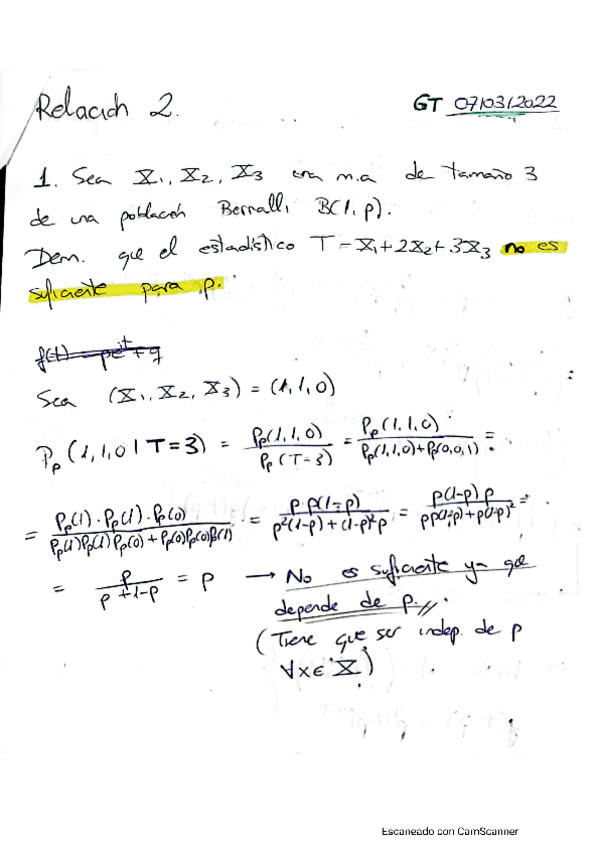 Relación 2.
GT 07/03/2022
1. Sea X₁, X₂, X₃ una m.a de tamaño 3
de una población Bernalli B(1, p).
Dem. que el estadístico T = X₁ + 2X₂ + 3X₃ no es
suficiente para p.
f(t) = pe^t + q
Sea (X₁, X₂, X₃) = (1, 1, 0)
Pp (1, 1, 0 | T = 3) = Pp(1, 1, 0) / Pp(T = 3) = Pp(1, 1, 0) / (Pp(1, 1, 0) + Pp(0, 0, 1)) =
= Pp(1) · Pp(1) · Pp(0) / (Pp(1)Pp(1)Pp(0) + Pp(0)Pp(0)Pp(1)) = p · p(1-p) / (p²(1-p) + (1-p)²p) = p(1-p) p / (pp(1-p) + p(1-p)²) =
= p / (p + 1 - p) = p → No es suficiente ya que
depende de p.
(Tiene que ser indep. de p
∀x ∈ X)
Escaneado con CamScanner